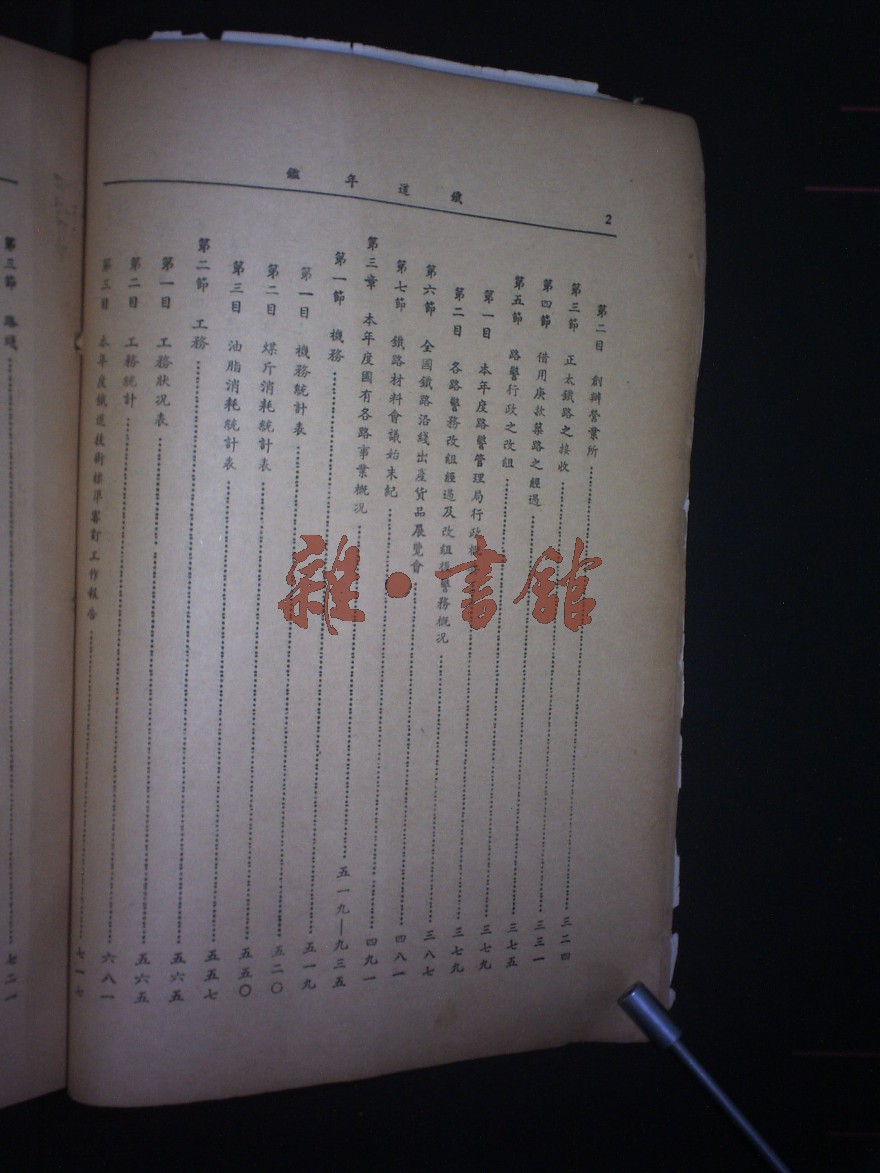 鐵道年鑑
2
第二目 創辦營業所 三二四
第三節 正太鐵路之接收 三三一
第四節 借用庚款築路之經過 三七五
第五節 路警行政之改組 三七九
第一目 本年度路警管理局行政概 三七九
第二目 各路警務改組經過及改組後警務概况 三八七
第六節 全國鐵路沿綫出產貨品展覽會 四八一
第七節 鐵路材料會議始末紀 四九一
第三章 本年度國有各路事業概况 五一九—九三五
第一節 機務 五一九
第一目 機務統計表 五二〇
第二目 煤斤消耗統計表 五五〇
第三目 油脂消耗統計表 五五七
第二節 工務 五六五
第一目 工務狀况表 五六五
第二目 工務統計 六八一
第三目 本年度鐵道技術標準審訂工作報告 七一七
第三節 路綫 七二一
雜·書館